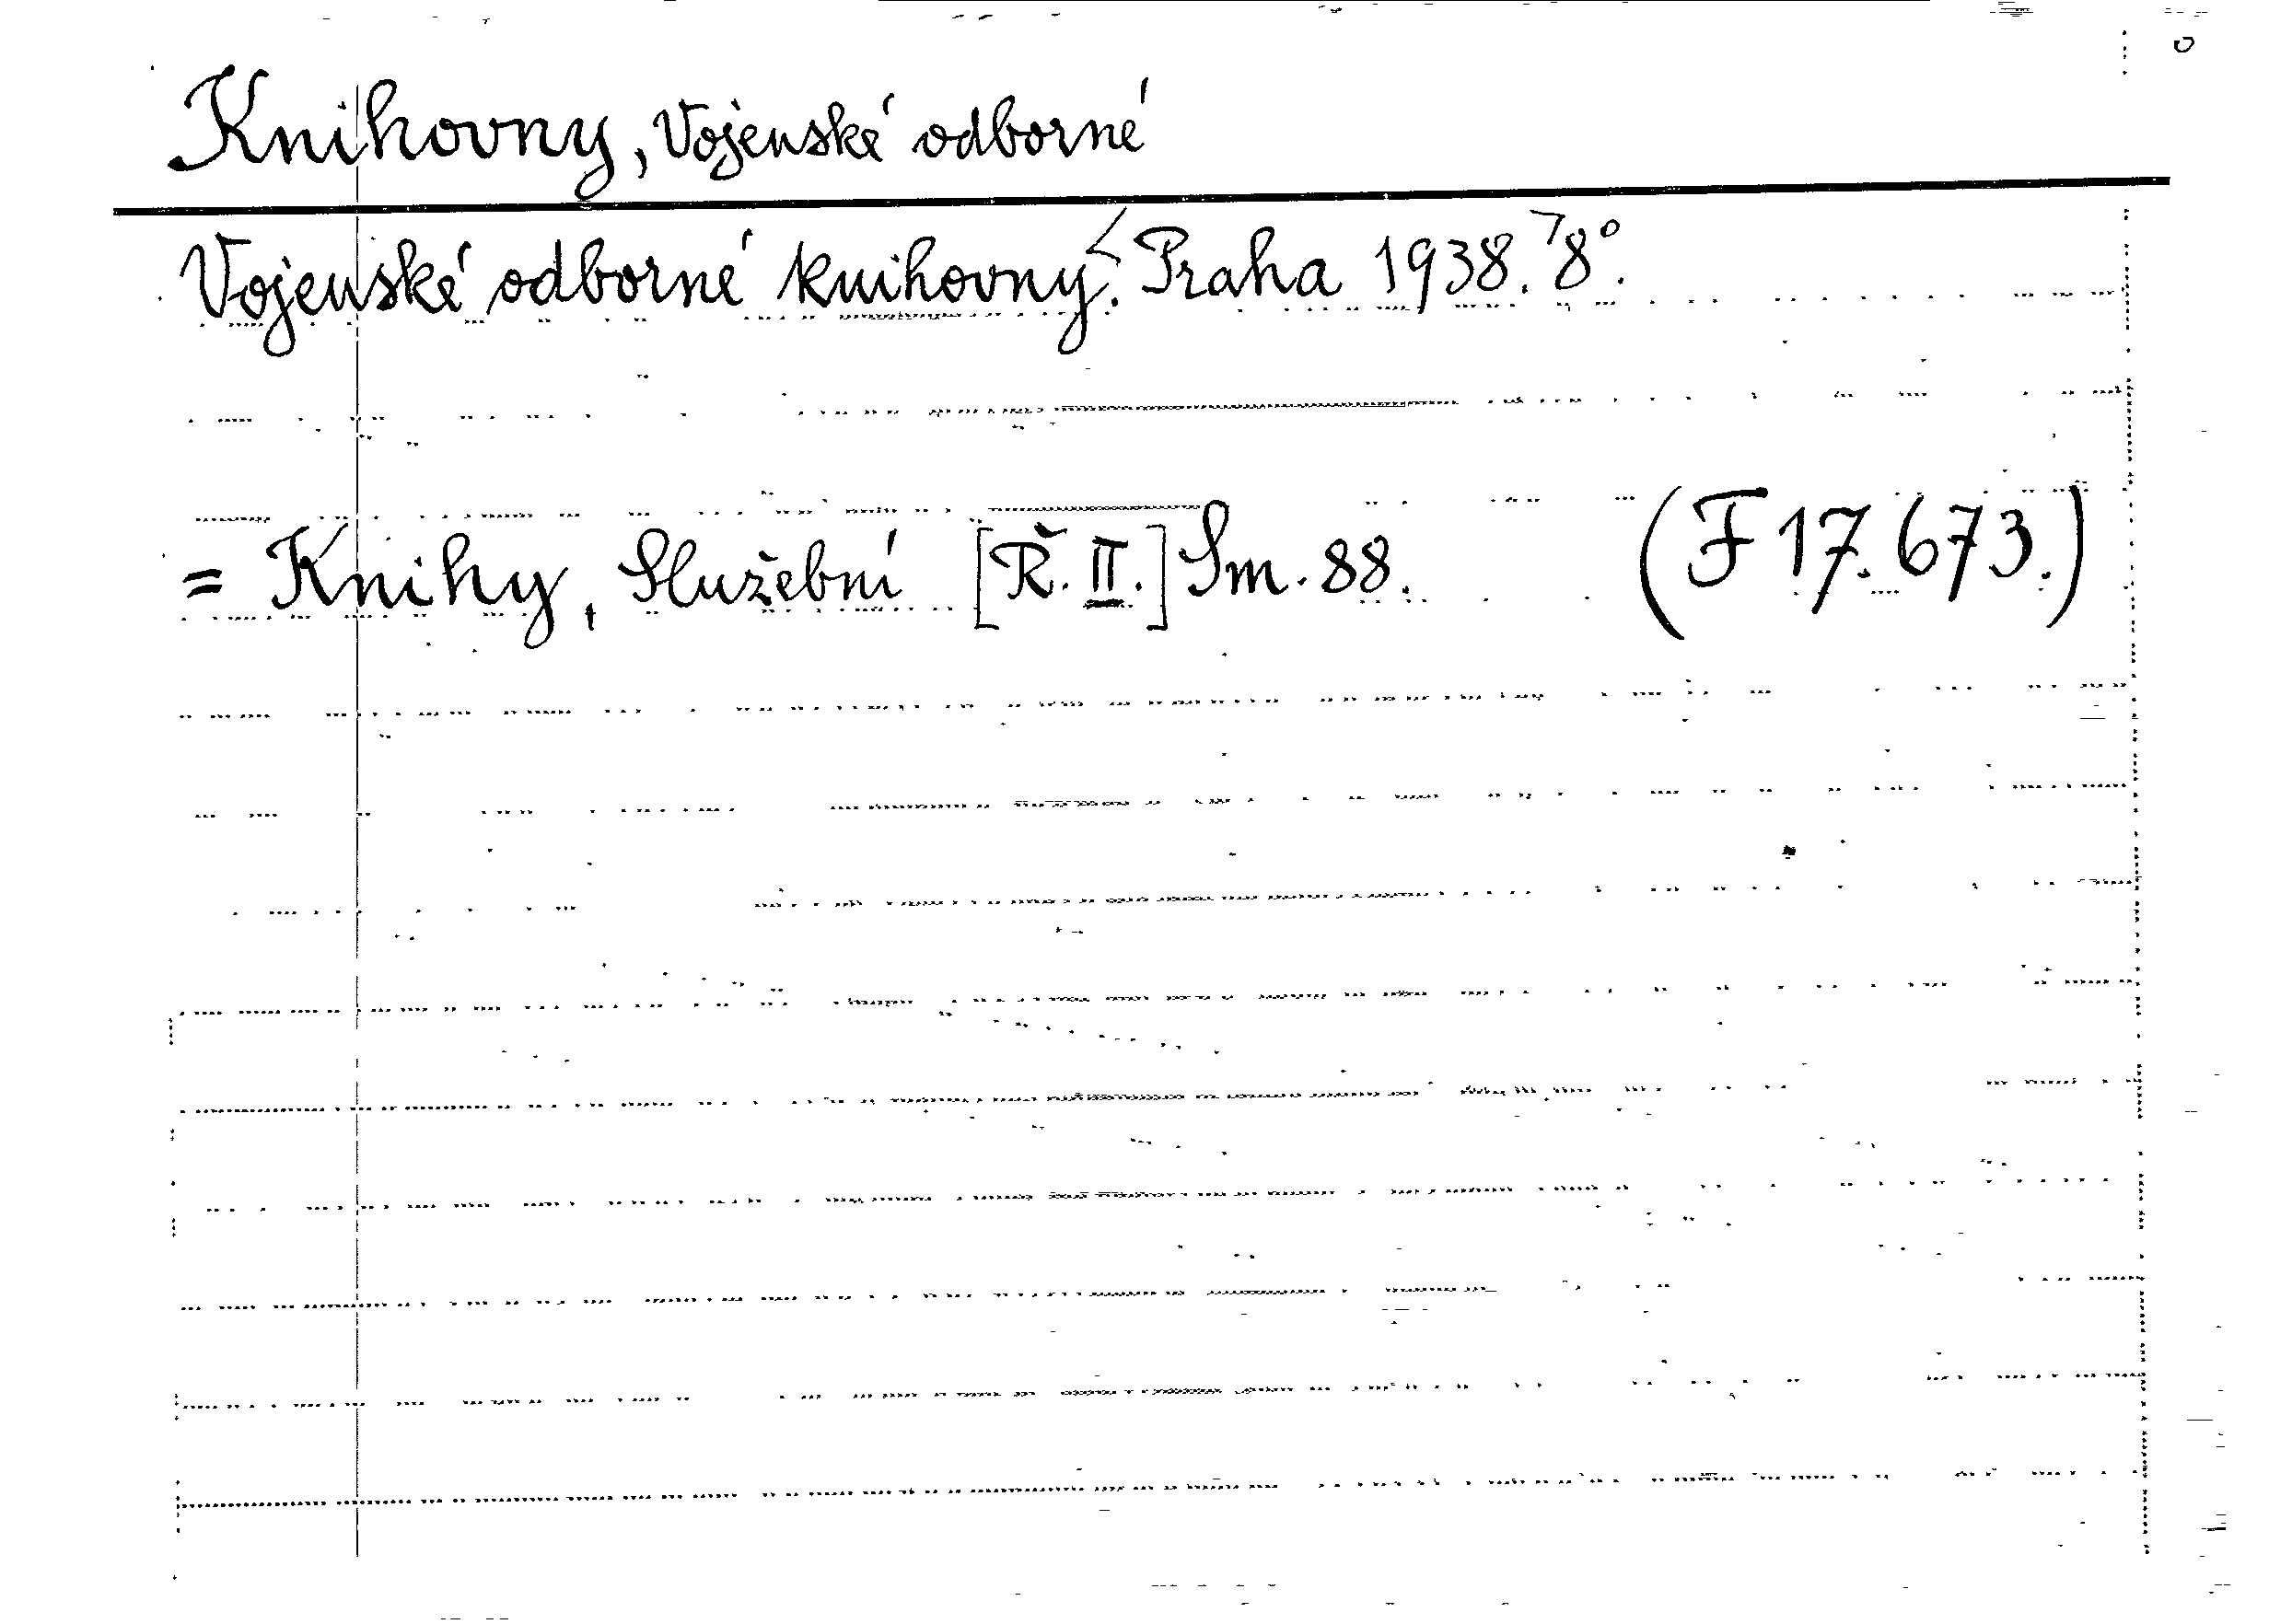 Knihovny, Vojenské odborné
Vojenské odborné knihovny. Praha 1938. 8°.
= Knihy, Služební [Ř. II.] Sm. 88. (F 17.673.)